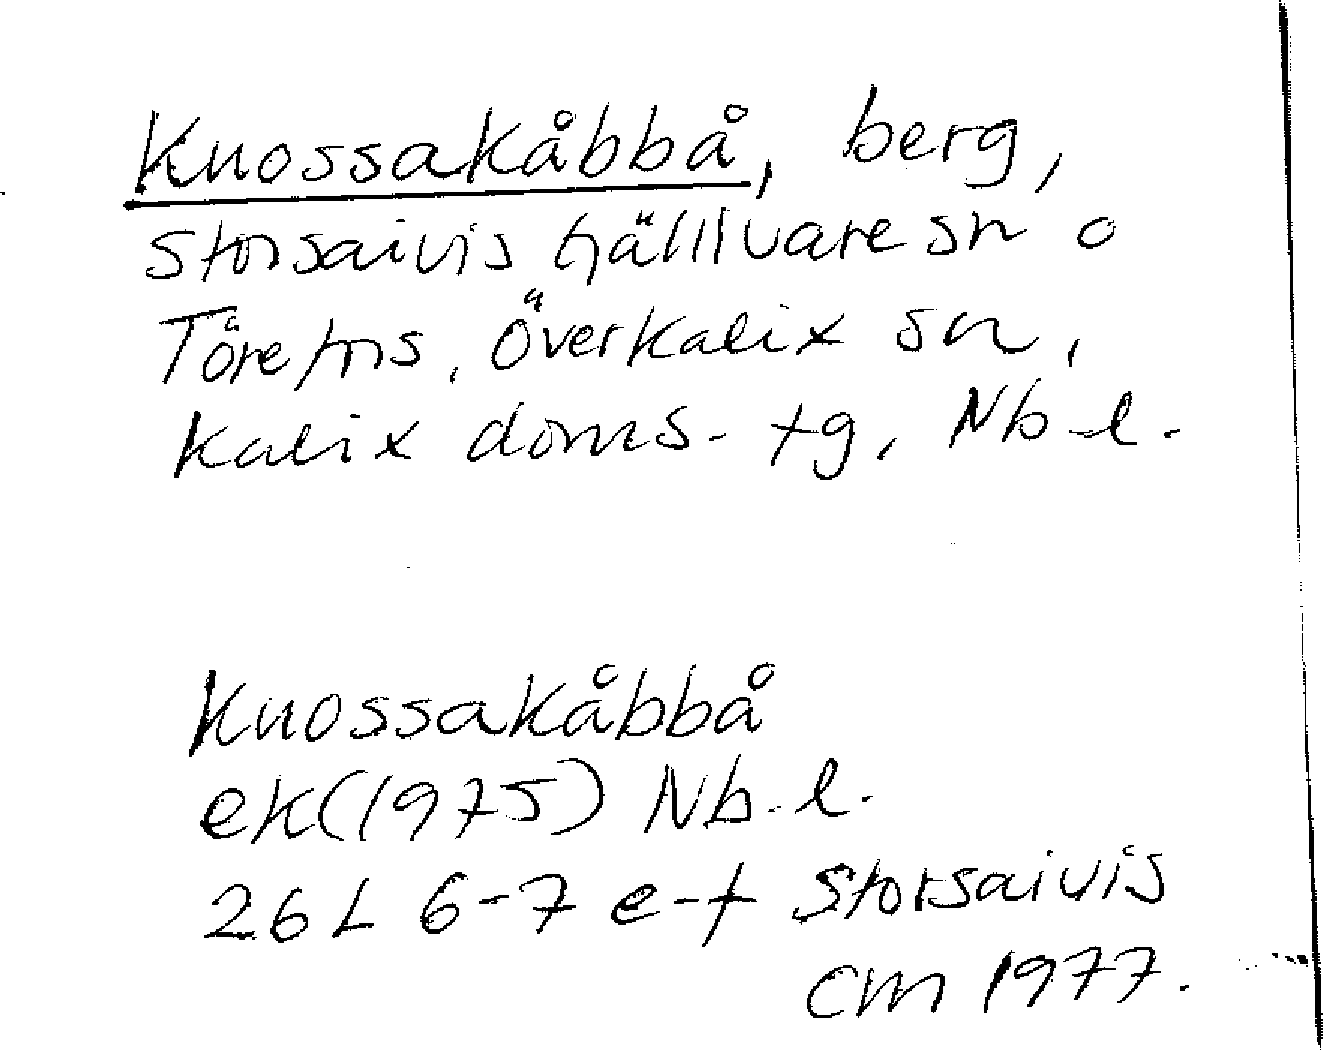 Knossakåbbå, berg,
Storsaivis Gällivare sn o
Töre fms, Överkalix sn,
Kalix doms. tg, Nb l.
Knossakåbbå
ek(1975) Nb. l.
26 L 6-7 e-f Storsaivis
CM 1977.